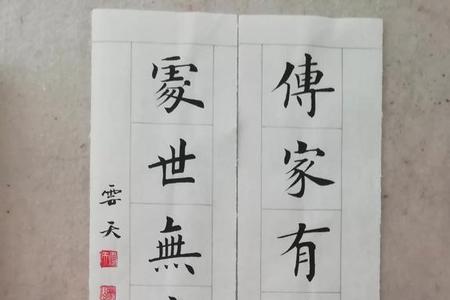 傳家有
處世無
雲天